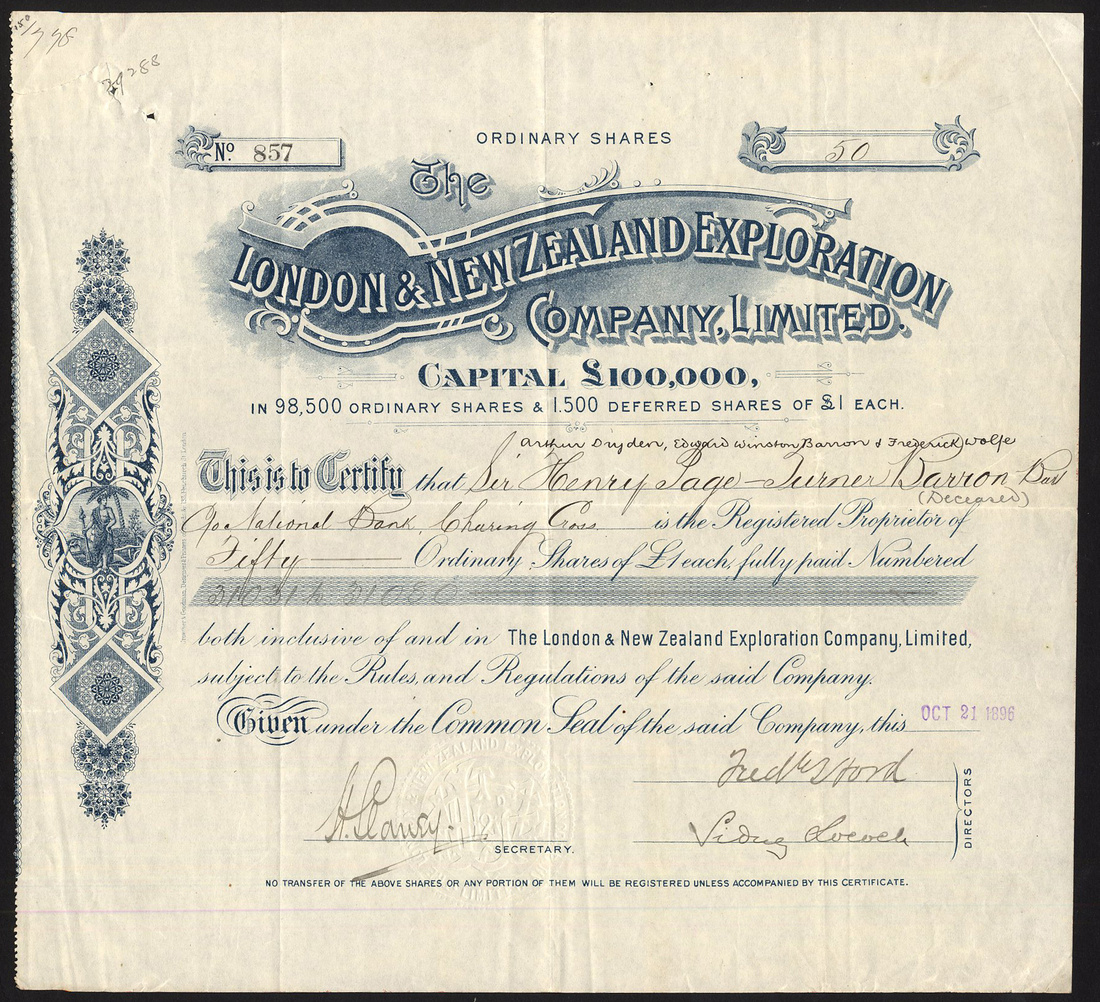 ORDINARY SHARES
No. 857
50
The
LONDON & NEW ZEALAND EXPLORATION
COMPANY, LIMITED.
CAPITAL £100,000,
IN 98,500 ORDINARY SHARES & 1.500 DEFERRED SHARES OF £1 EACH.
Arthur Dryden, Edward Winston Barron & Frederick Wolfe
This is to Certify that Sir Henry Page-Turner Barron Bar
(Deceased)
c/o National Bank, Charing Cross is the Registered Proprietor of
Fifty Ordinary Shares of £1 each, fully paid Numbered
31031 to 31080
both inclusive of and in The London & New Zealand Exploration Company, Limited,
subject to the Rules, and Regulations of the said Company.
Given under the Common Seal of the said Company, this OCT 21 1896
DIRECTORS
SECRETARY.
NO TRANSFER OF THE ABOVE SHARES OR ANY PORTION OF THEM WILL BE REGISTERED UNLESS ACCOMPANIED BY THIS CERTIFICATE.